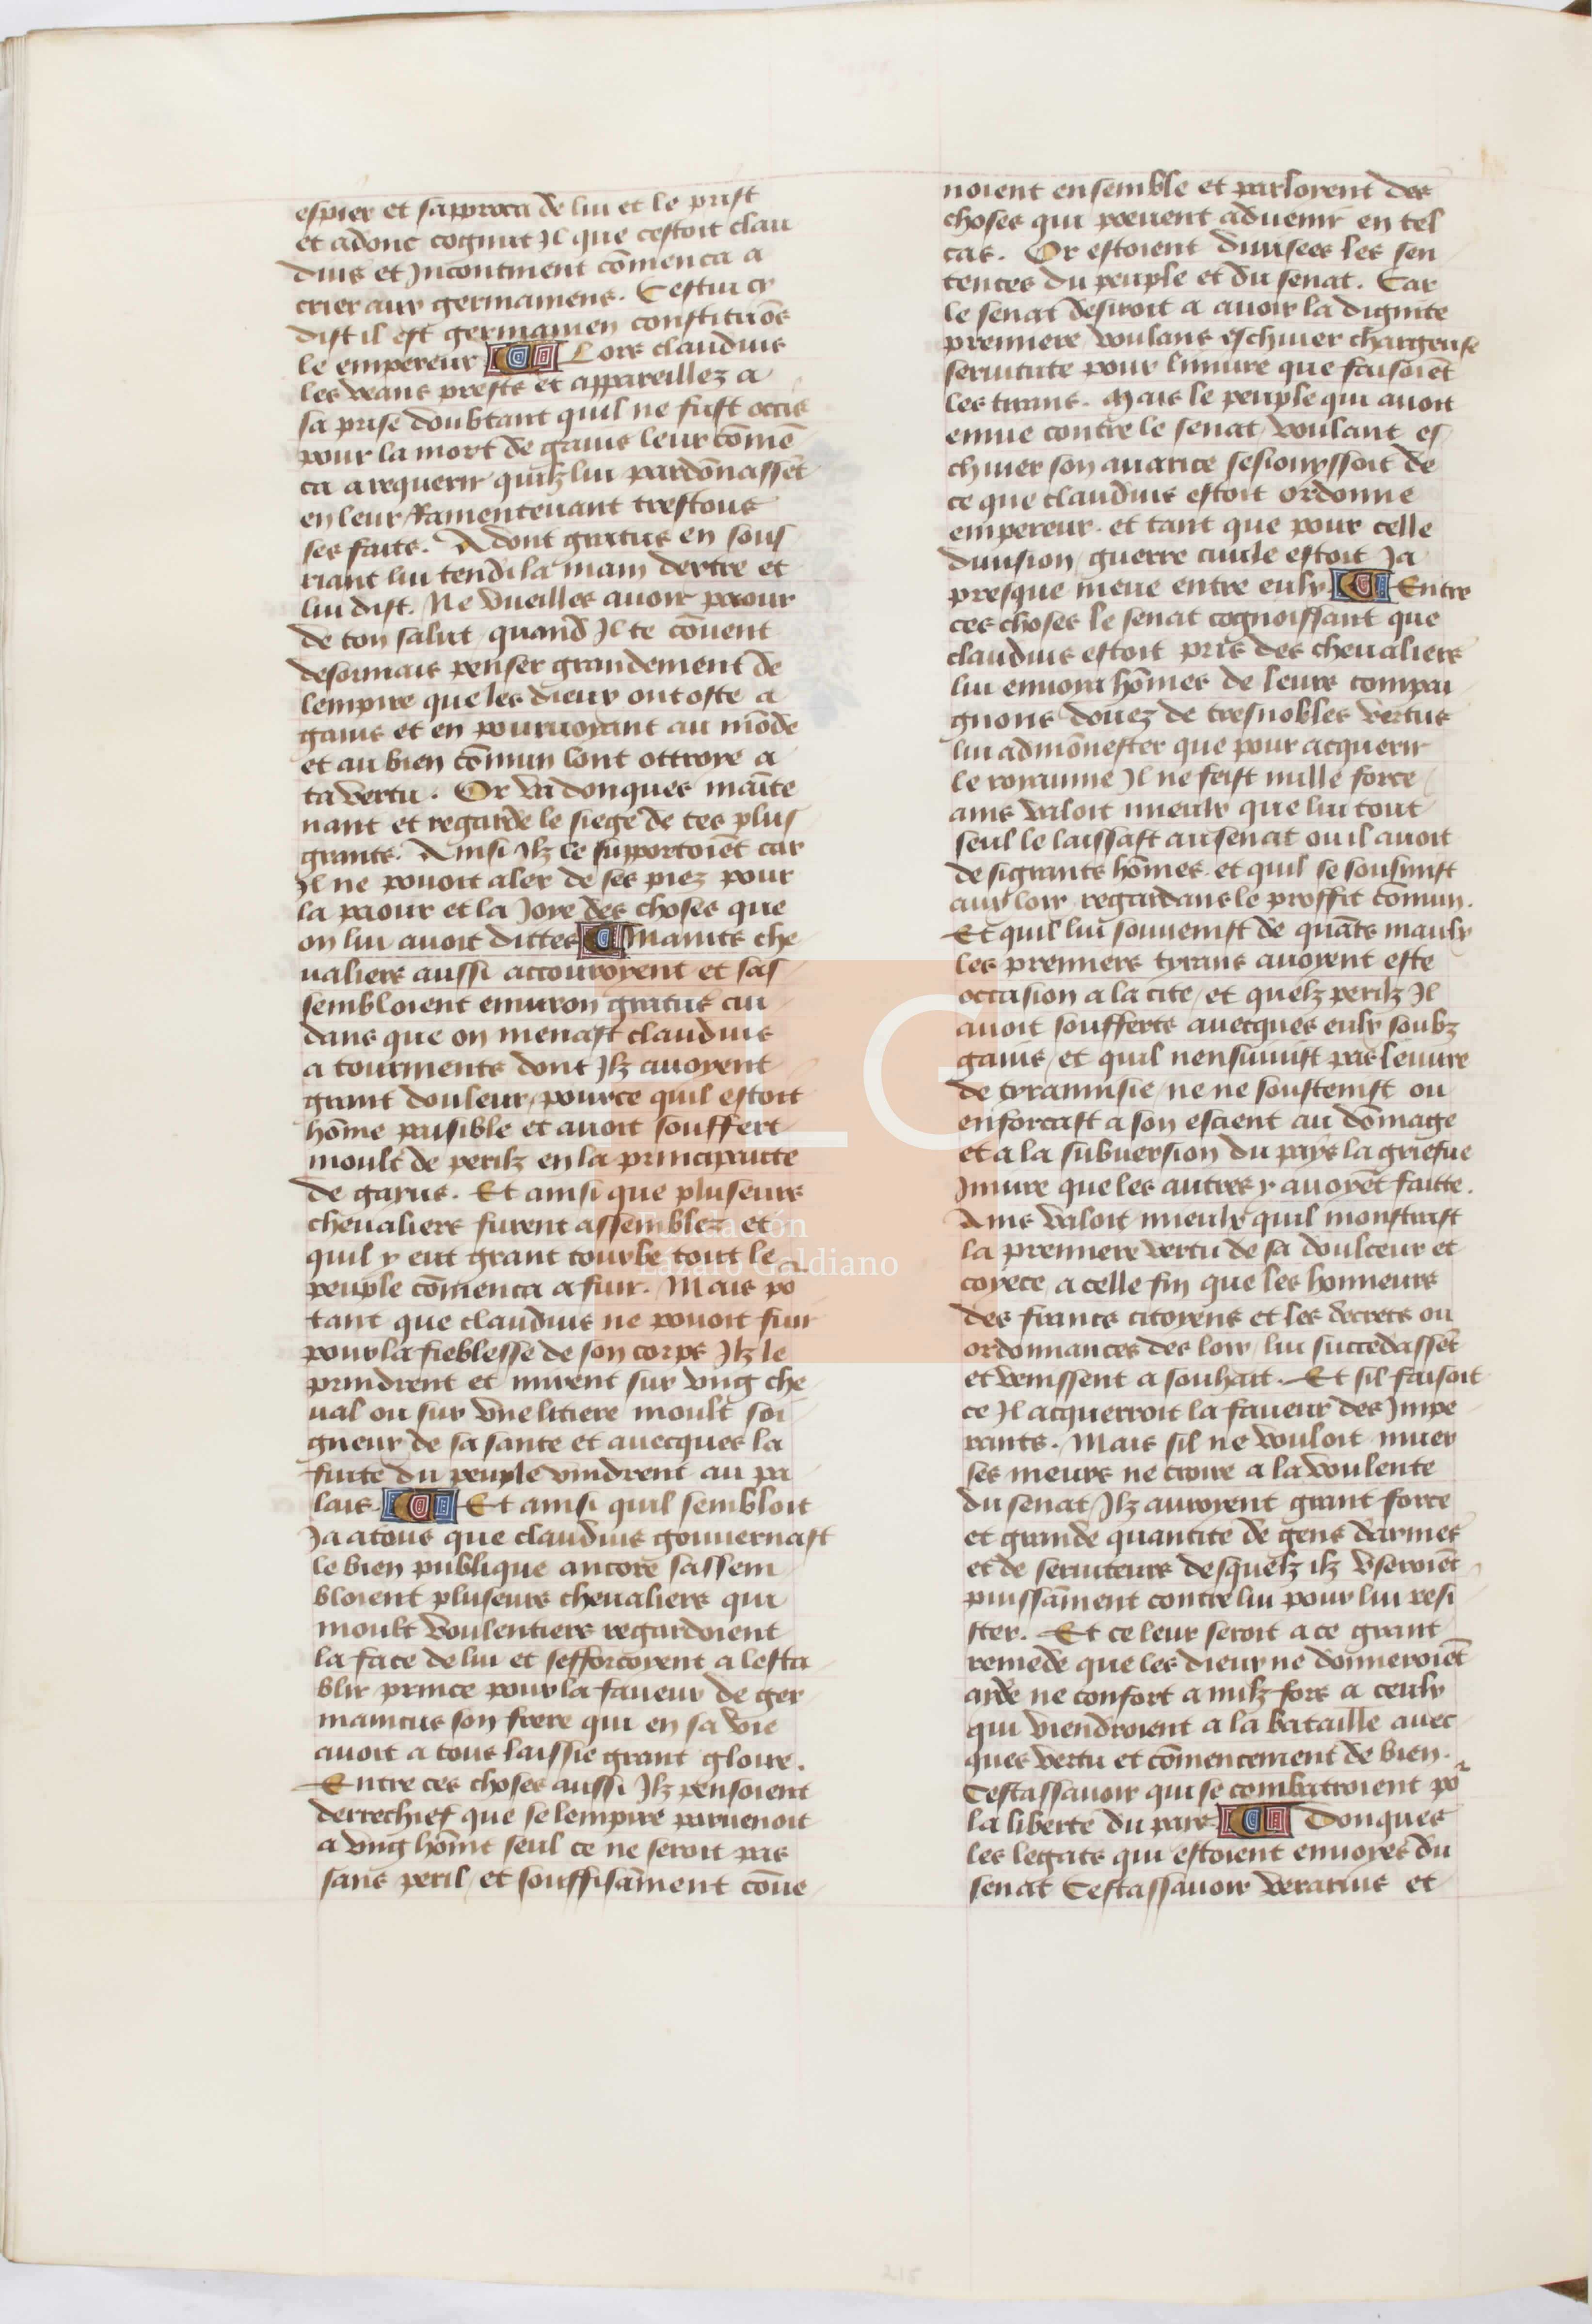 espier et sapproca de lui et le prist
et adonc cognut Il que cestoit clau
dius et Incontinent cōmenca a
crier aux germaniens. Cestui cy
dist il est germanien constituōs
le empereur Lors claudius
les veans prests et appareillez a
sa prise doubtant quil ne fust occis
pour la mort de gaius leur cōmē
ca a requerir quilz lui pardōnassēt
en leur Ramentevant trestous
ses faits. Adont gratus en sous
riant lui tendi la main dextre et
lui dist. Ne vueilles avoir paour
de ton salut quand Il te cōvient
desormais penser grandement de
lempire que les dieux ont oste a
gaius et en pourvoyant au mōde
et au bien cōmun lont ottroye a
ta vertu. Or va donques maīte
nant et regarde le siege de tes plus
grants. Ainsi Ilz le supportoiēt car
Il ne povoit aler de ses piez pour
la paour et la Joye des choses que
on lui avoit dittes Maints che
valiers aussi accouroyent et sas
sembloient environ gratus cui
dans que on menast claudius
a tourments dont Ilz avoyent
grant douleur pource quil estoit
hōme paisible et avoit souffert
moult de perilz en la principaute
de gayus. Et ainsi que pluseurs
chevaliers furent assemblez et
quil y eut grant tourbe tout le
peuple cōmenca a fuir. Mais po
tant que claudius ne povoit fuir
pour la fieblesse de son corps Ilz le
prindrent et mirent sur vng che
val ou sur vne litiere moult soi
gneux de sa sante et avecques la
fuite du peuple vindrent au pa
lais. Et ainsi quil sembloit
Ja a tous que claudius gouvernast
le bien publique ancore sassem
bloient pluseurs chevaliers qui
moult voulentiers regardoient
la face de lui et sefforcoyent a lesta
blir prince pour la faveur de ger
manicus son frere qui en sa vie
avoit a tous laissie grant gloire.
Entre ces choses aussi Ilz pensoient
derrechief que se lempire parvenoit
a vng hōme seul ce ne seroit pas
sans peril et souffisāment cōve
noient ensemble et parloyent des
choses qui pevent advenir en tel
cas. Or estoient divisees les sen
tences du peuple et du senat. Car
le senat desiroit a avoir la dignite
premiere voulans eschiver chargeuse
servitute pour linjure que faisoiēt
les tirans. Mais le peuple qui avoit
envie contre le senat voulant es
chiver son avarice sesjouyssoit de
ce que claudius estoit ordonne
empereur. et tant que pour celle
division guerre civile estoit Ja
presque meue entre eulx Entre
ces choses le senat cognoissant que
claudius estoit pris des chevaliers
lui envoya hōmes de leurs compai
gnons douez de tresnobles vertus
lui admōnester que pour acquerir
le royaume Il ne feist nulle force
ains valoit mieulx que lui tout
seul le laissast au senat ou il avoit
de si grants hōmes. et quil se sousmist
aux loix regardans le proffit cōmun.
Et quil lui souvenist de quāts maulx
les premiers tyrans avoyent este
occasion a la cite et quelz perilz Il
avoit soufferts avecques eulx soubz
gaius et quil nensuivist pas lenvie
de tyrannisie ne ne soustenist ou
enforcast a son escient au dōmage
et a la subversion du pays la griefve
Injure que les autres y avoyēt faitte.
Ains valoit mieulx quil monstrast
la premiere vertu de sa doulceur et
coyece a celle fin que les honneurs
des francs citoyens et les decrets ou
ordonnances des loix lui succedassēt
et venissent a souhait. Et sil faisoit
ce Il acquerroit la faveur des Impe
rants. Mais sil ne vouloit muer
ses meurs ne croire a la voulente
du senat Ilz auroyent grant force
et grande quantite de gens darmes
et de serviteurs desquelz ilz vseroiēt
puissāment contre lui pour lui resi
ster. Et ce leur seroit a ce grant
remede que les dieux ne donneroiēt
ayde ne confort a nulz fors a ceulx
qui viendroient a la bataille avec
ques vertu et cōmencement de bien.
Cestassavoir qui se combatroient po
la liberte du pais Donques
les legats qui estoient envoyes du
senat Cestassavoir verarius et